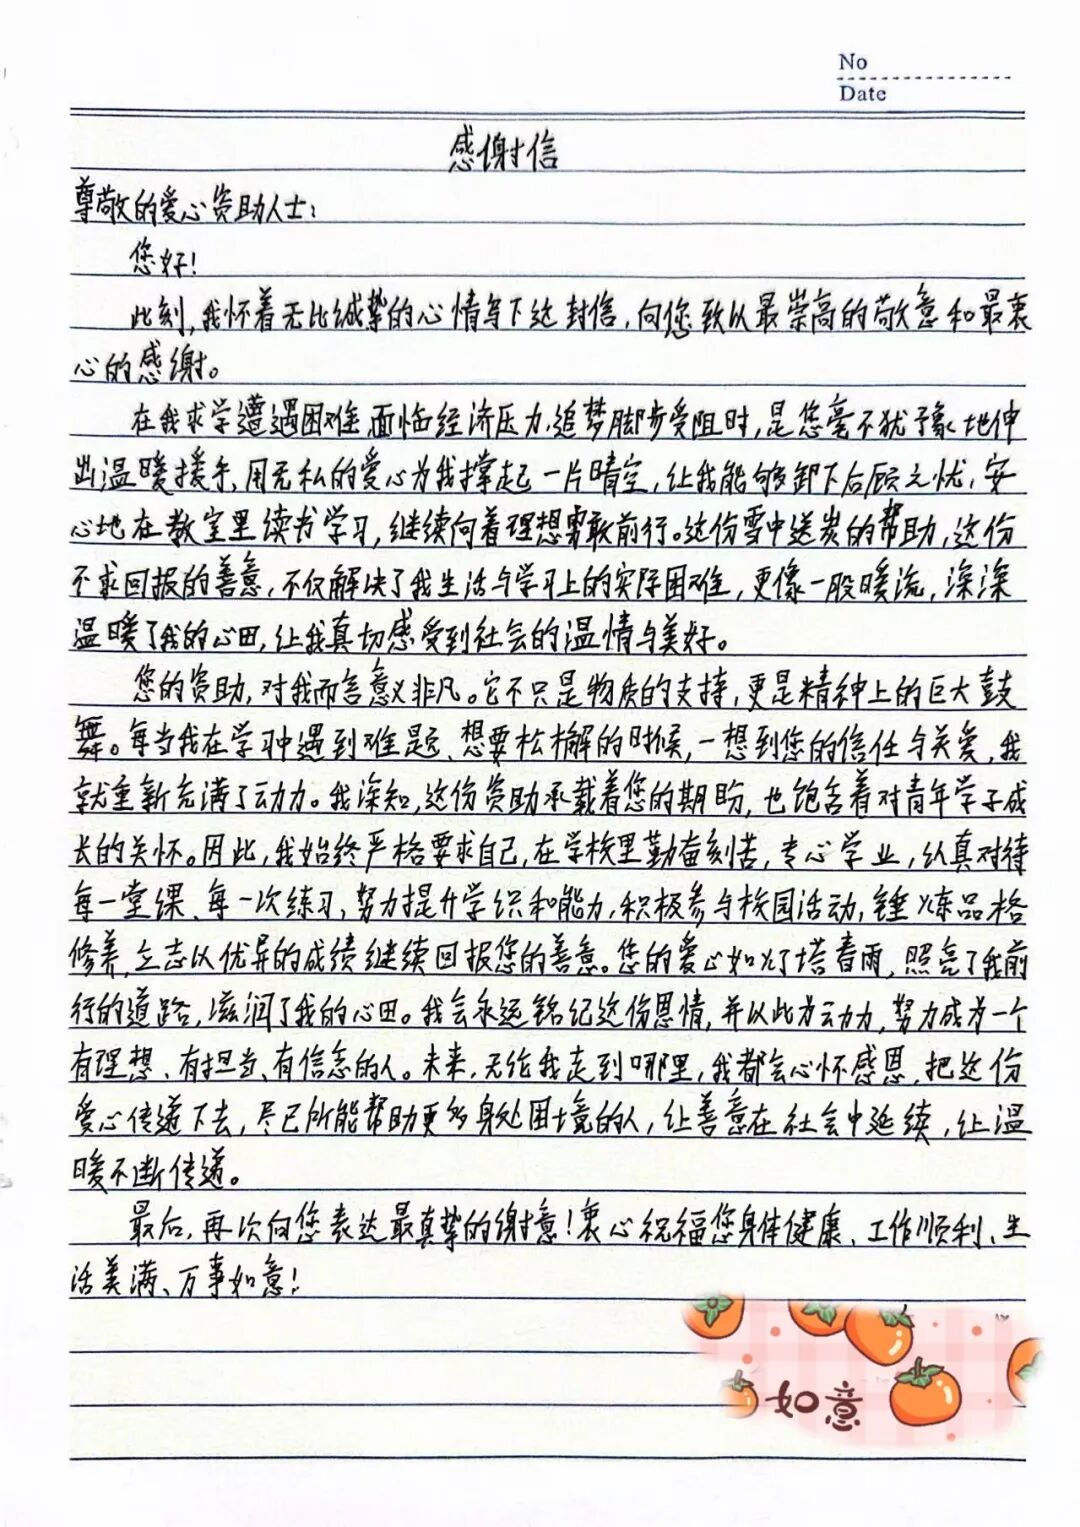 No
Date
感谢信
尊敬的爱心资助人士：
您好！
此刻，我怀着无比诚挚的心情写下这封信，向您致以最崇高的敬意和最衷
心的感谢。
在我求学遭遇困难、面临经济压力、追梦脚步受阻时，是您毫不犹豫地伸
出温暖援手，用无私的爱心为我撑起一片晴空，让我能够卸下后顾之忧，安
心地在教室里读书学习，继续向着理想勇敢前行。这份雪中送炭的帮助，这份
不求回报的善意，不仅解决了我生活与学习上的实际困难，更像一股暖流，深深
温暖了我的心田，让我真切感受到社会的温情与美好。
您的资助，对我而言意义非凡。它不只是物质的支持，更是精神上的巨大鼓
舞。每当我在学习中遇到难题、想要松懈的时候，一想到您的信任与关爱，我
就重新充满了动力。我深知，这份资助承载着您的期盼，也饱含着对青年学子成
长的关怀。因此，我始终严格要求自己，在学校里勤奋刻苦，专心学业，认真对待
每一堂课、每一次练习，努力提升学识和能力，积极参与校园活动，锤炼品格
修养，立志以优异的成绩继续回报您的善意。您的爱心如灯塔春雨，照亮了我前
行的道路，滋润了我的心田。我会永远铭记这份恩情，并以此为动力，努力成为一个
有理想、有担当、有信念的人。未来，无论我走到哪里，我都会心怀感恩，把这份
爱心传递下去，尽己所能帮助更多身处困境的人，让善意在社会中延续，让温
暖不断传递。
最后，再次向您表达最真挚的谢意！衷心祝福您身体健康、工作顺利、生
活美满、万事如意！
如意